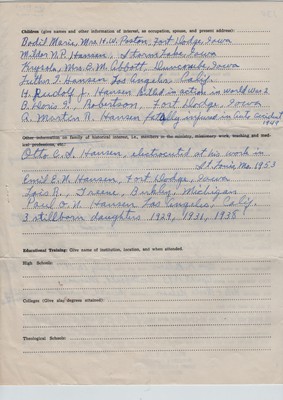 Children (give names and other information of interest, as occupation, spouse, and present address):
Bodil Marie, Mrs. H.W. Poston, Fort Dodge, Iowa
Milton N.P. Hansen, Storm Lake, Iowa
Krysta, Mrs. B.M. Abbott, Duncombe, Iowa
Luther T. Hansen Los Angeles, Calif.
H. Rudolf J. Hansen Killed in action in world war 2
B. Doris E. Robertson, Fort Dodge, Iowa
A. Morten R. Hansen fatally injured in Auto Accident
1949
Other information on family of historical interest, i.e., members in the ministry, missionary work, teaching and medical professions, etc.:
Otto C.S. Hansen, electrocuted at his work in
St. Louis, Mo. 1953
Emil E.W. Hansen, Fort Dodge, Iowa
Lois R. Greene, Berkley, Michigan
Paul O.W. Hansen Los Angeles, Calif.
3 stillborn daughters 1929, 1931, 1938
Educational Training: Give name of institution, location, and when attended.
High Schools:
Colleges (Give also degrees attained):
Theological Schools: